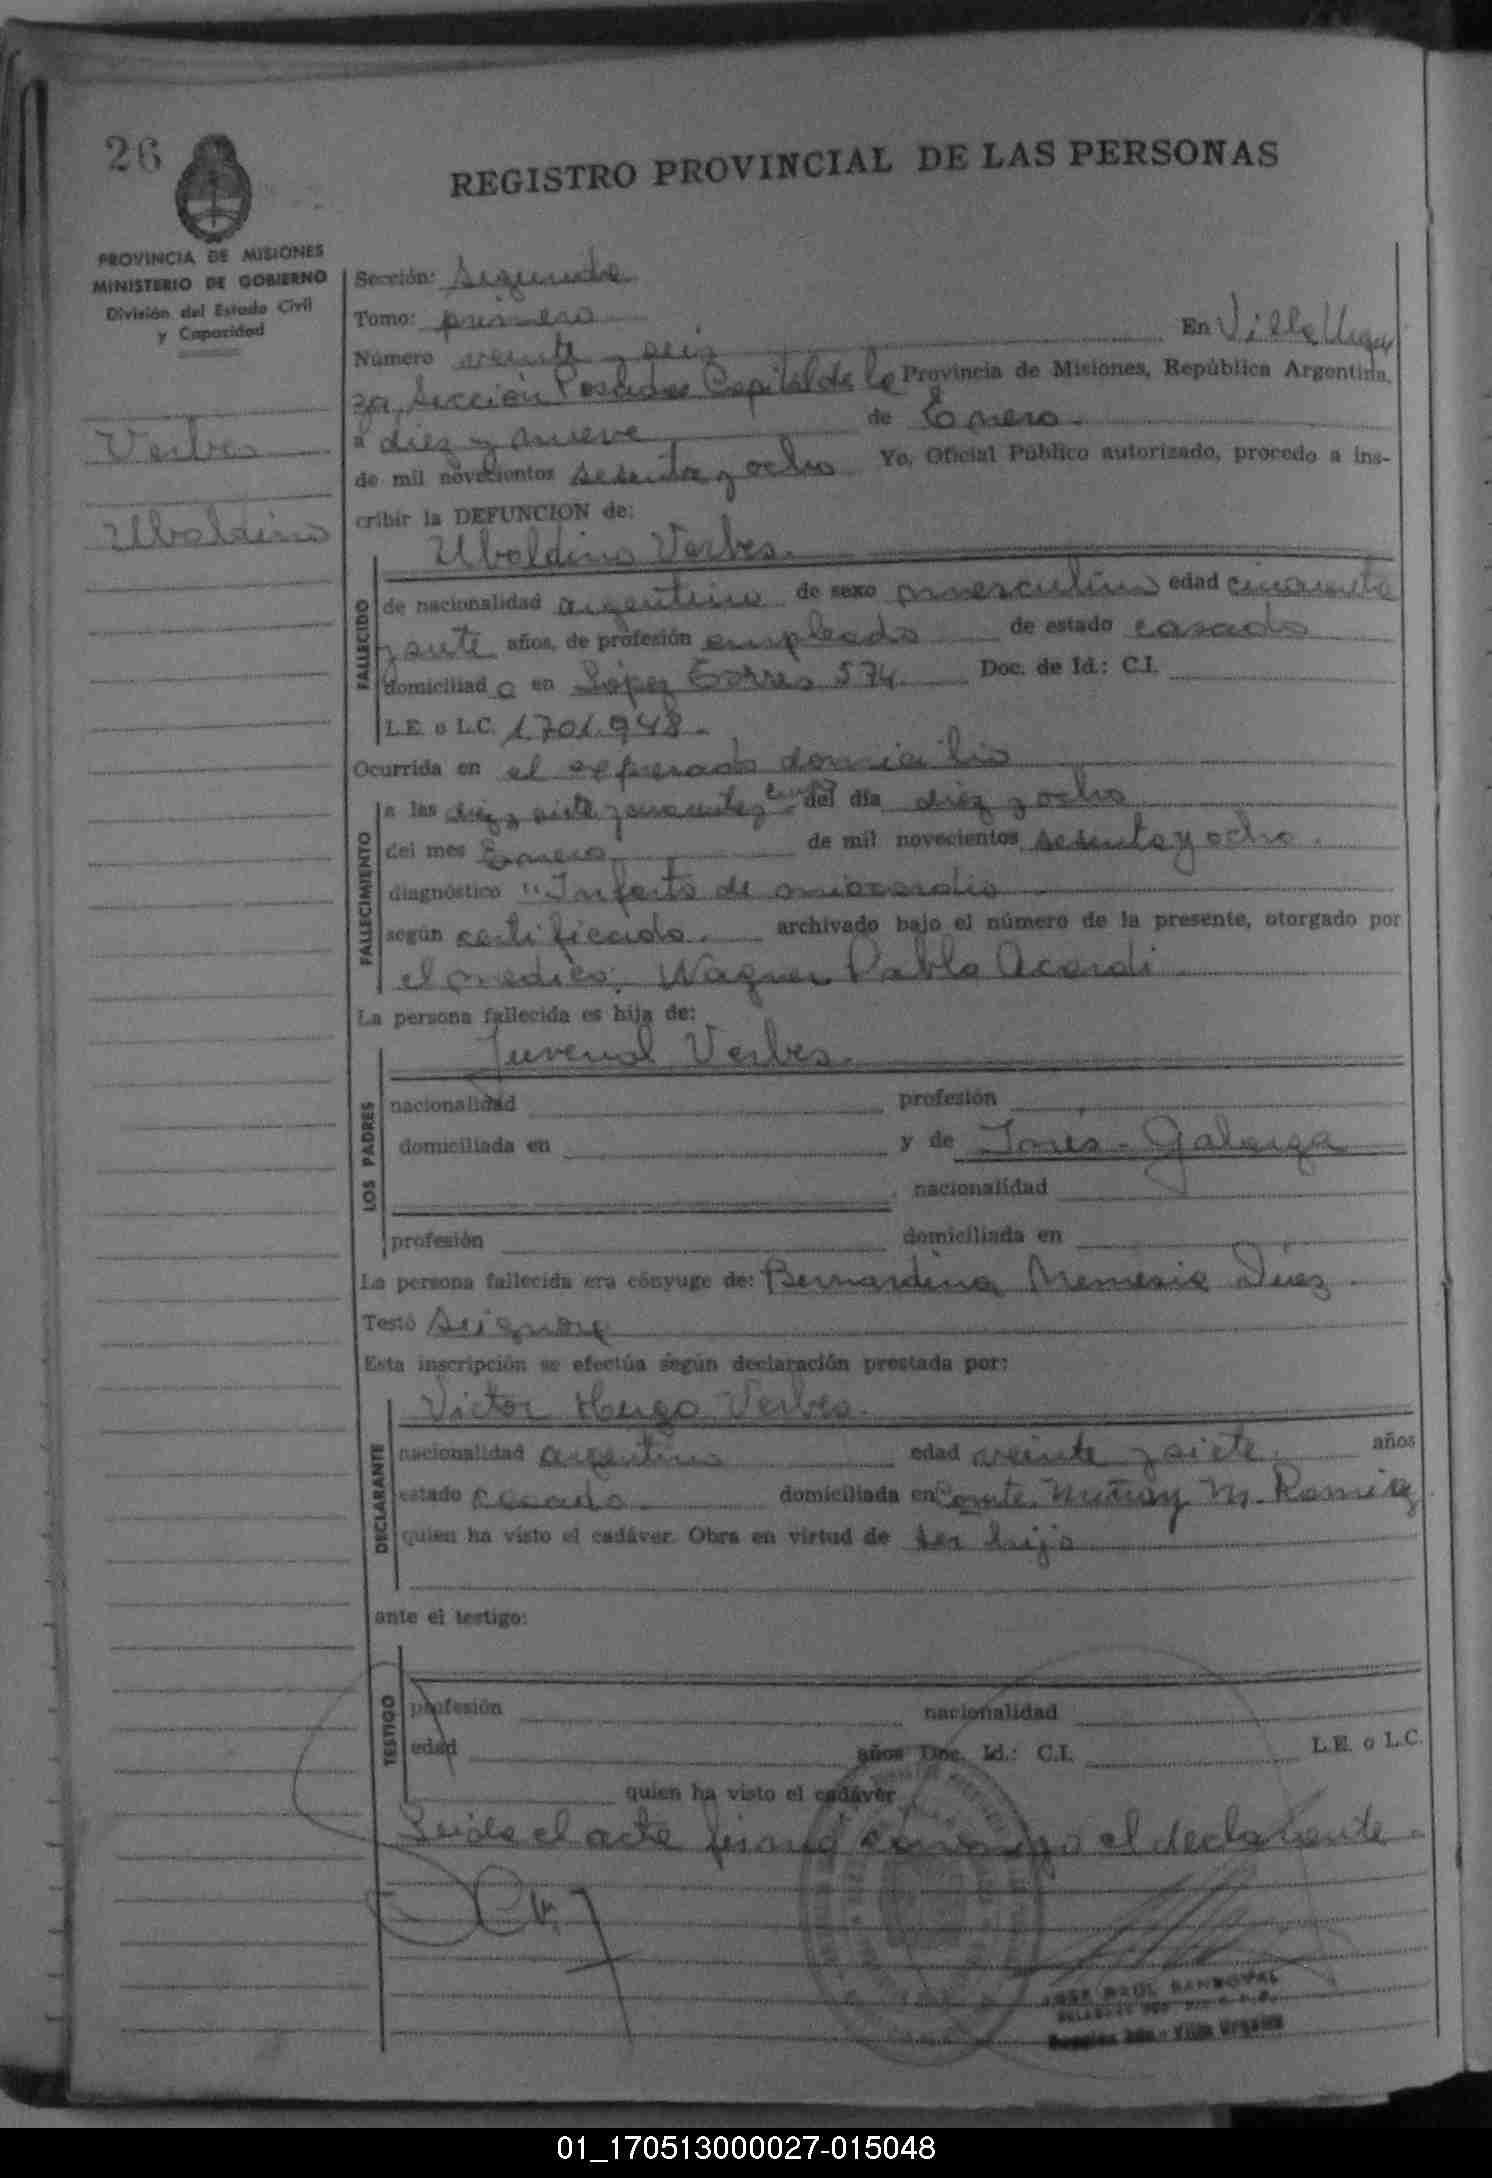 26
REGISTRO PROVINCIAL DE LAS PERSONAS
PROVINCIA DE MISIONES
MINISTERIO DE GOBIERNO
División del Estado Civil
y Capacidad
Verbes
Ubaldino
Sección: Segunda
Tomo: primero
Número veinte y seis En Villa Urqui
za, Sección Posadas Capital de la Provincia de Misiones, República Argentina,
a diez y nueve de Enero
de mil novecientos sesenta y ocho Yo, Oficial Público autorizado, procedo a ins-
cribir la DEFUNCION de:
Ubaldino Verbes.
FALLECIDO
de nacionalidad argentino de sexo masculino edad cincuenta
y siete años, de profesión empleado de estado casado
domiciliado en López Torres 574 Doc. de Id.: C.I.
L.E. o L.C. 1.701.948.
Ocurrida en el expresado domicilio
FALLECIMIENTO
a las diez y siete y cuarenta y cinco del día diez y ocho
del mes Enero de mil novecientos sesenta y ocho.
diagnóstico "Infarto de miocardio
según certificado. archivado bajo el número de la presente, otorgado por
el medico, Wagner Pablo Acardi
La persona fallecida es hija de:
Juvenal Verbes.
LOS PADRES
nacionalidad profesión
domiciliada en y de Inés - Galarga
nacionalidad
profesión domiciliada en
La persona fallecida era cónyuge de: Bernardina Nemesia Diez
Testó se ignora
Esta inscripción se efectúa según declaración prestada por:
Victor Hugo Verbes.
DECLARANTE
nacionalidad argentino edad veinte y siete años
estado casado domiciliada en Comte. M. Ramirez
quien ha visto el cadáver. Obra en virtud de ser hijo
ante el testigo:
TESTIGO
profesión nacionalidad
edad años Doc. Id.: C.I. L.E. o L.C.
quien ha visto el cadáver
Leída el acta firmó conmigo el declarante.
JOSE RAUL SANDOVAL
Sección 2da - Villa Urquiza
01_170513000027-015048